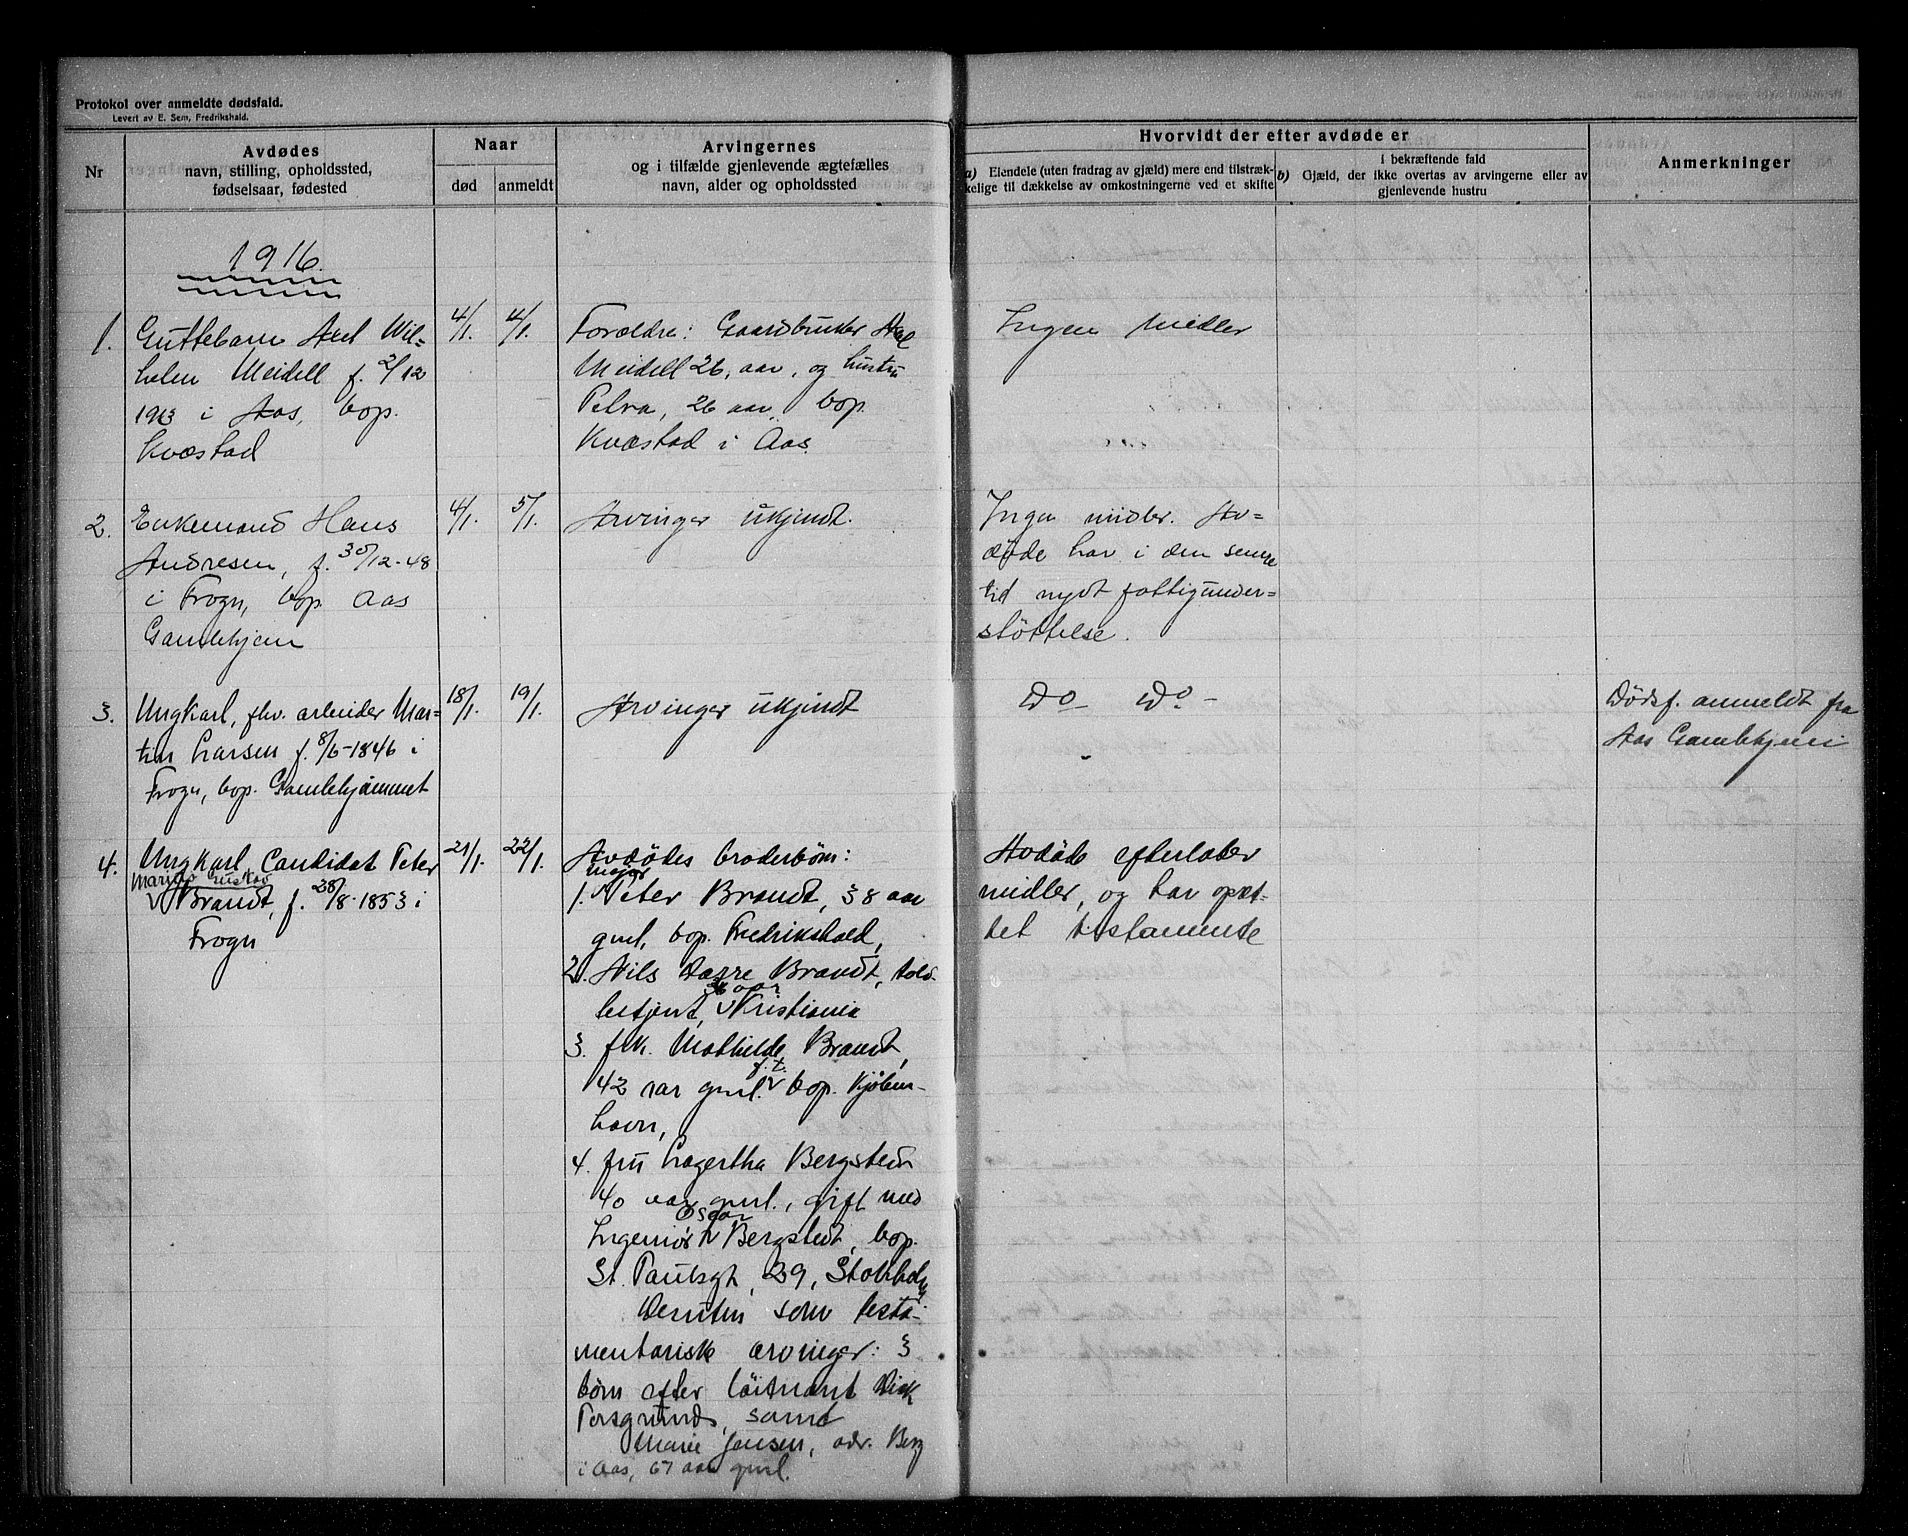 Protokol over anmeldte dødsfald.
Levert av E. Sem, Fredrikshald.
Nr
Avdødes
navn, stilling, opholdssted,
fødselsaar, fødested
Naar
død
anmeldt
Arvingernes
og i tilfælde gjenlevende ægtefælles
navn, alder og opholdssted
Hvorvidt der efter avdøde er
a) Eiendele (uten fradrag av gjæld) mere end tilstræk-
kelige til dækkelse av omkostningerne ved et skifte
i bekræftende fald
b) Gjæld, der ikke overtas av arvingerne eller av
gjenlevende hustru
Anmerkninger
1916.
1.
Guttebarn Axel Wil-
helm Meidell f. 2/12
1913 i Aas, bop.
Kvæstad
4/1.
4/1.
Forældre: Gaardbruker Axel
Meidell 26, aar, og hustru
Petra, 26 aar, bop.
Kvæstad i Aas
Ingen midler
2.
Enkemand Hans
Andresen, f. 30/12-48
i Frogn, bop. Aas
Gamlehjem
4/1.
5/1.
Arvinger ukjendt.
Ingen midler. Av-
døde har i den senere
tid nydt fattigunder-
støttelse.
3.
Ungkarl, fhv. arbeider Mar-
tin Larsen f. 8/6-1846 i
Frogn, bop. Gamlehjemmet
18/1.
19/1.
Arvinger ukjendt
Do Do -
Dødsf. anmeldt fra
Aas Gamlehjem
4.
Ungkarl, Candidat Peter
Marius Gustav
Brandt, f. 28/8-1853 i
Frogn
21/1.
22/1.
Avdødes broderbørn:
major
1. Peter Brandt, 38 aar
gml, bop. Fredrikshald,
2. Nils Darre Brandt, told-
36 aar
betjent, Kristiania
3. frk. Mathilde Brandt,
f.t.
42 aar gml. bop. Kjøben-
havn,
4. fru Lagertha Bergstedt
40 aar gml., gift med
Oscar
Ingeniør Bergstedt, bop.
St. Paulsgt, 29, Stokholm
Desuten som testa-
mentarisk arvinger: 3
børn efter løitnant Dick
Forsgrund, samt
Marie Jansen, adr. Berg
i Aas, 67 aar gml.
Avdøde efterlater
midler, og har opret-
tet testamente